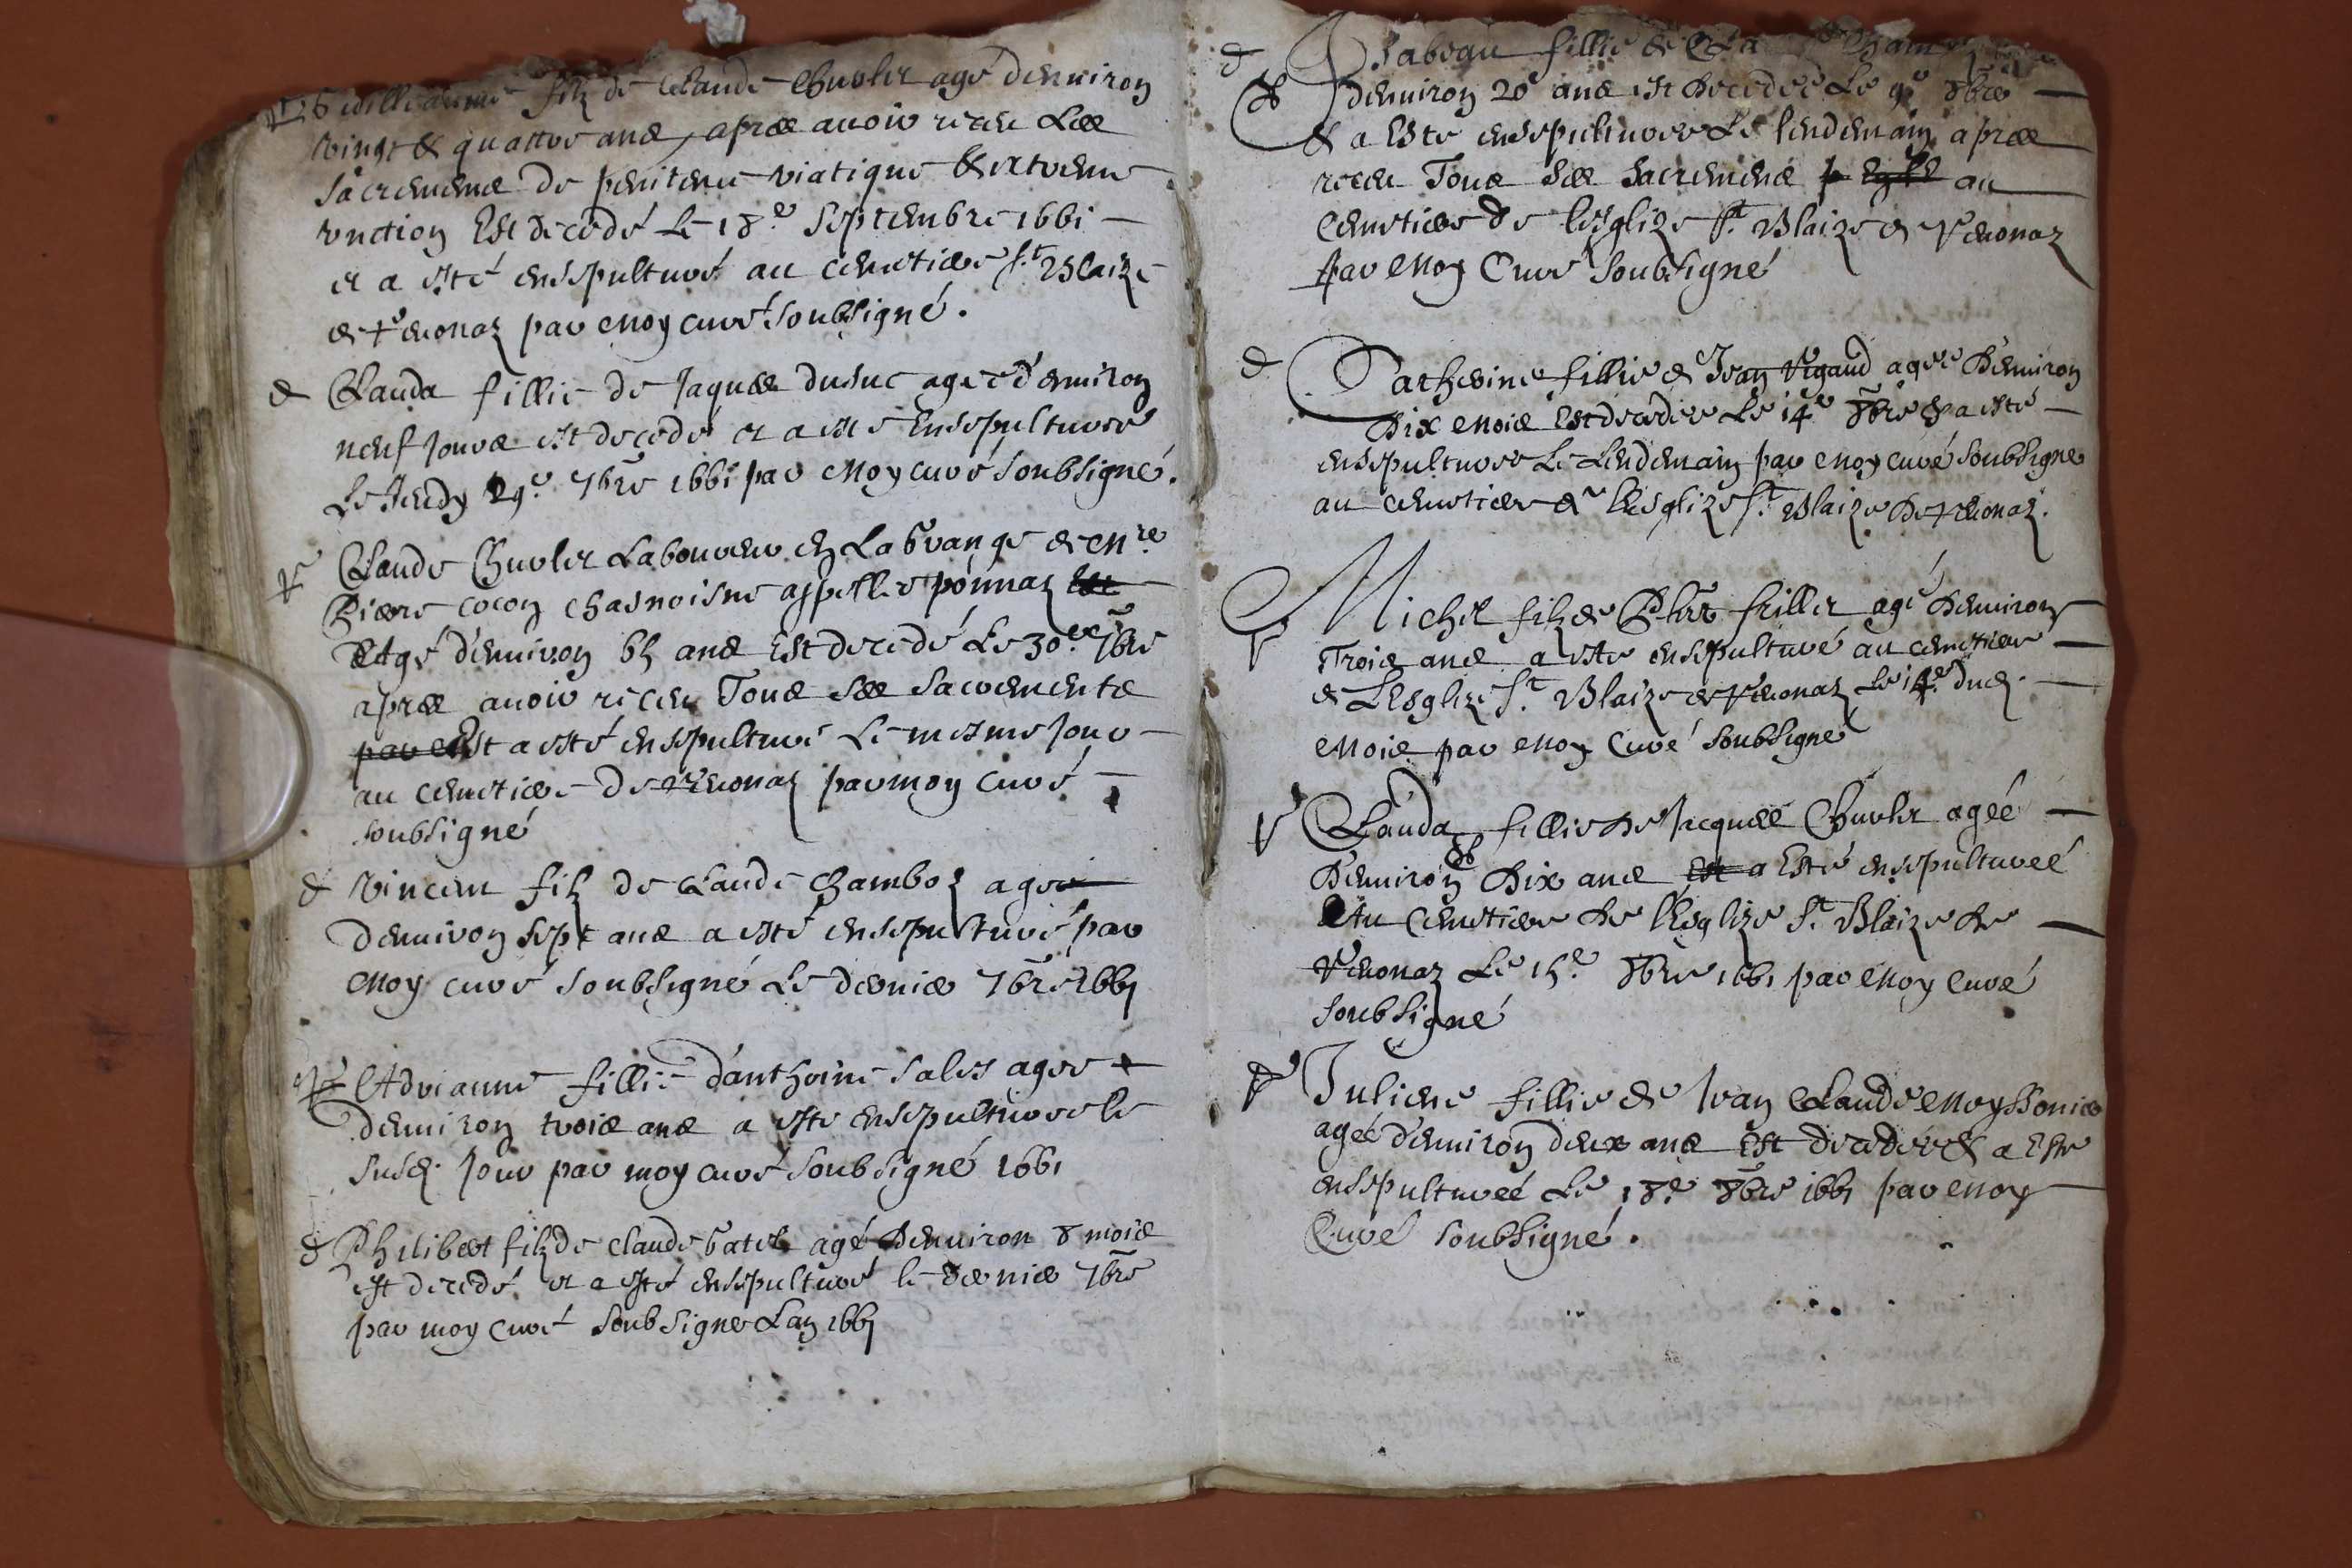 Guillaume filz de Claude Chuolet agé denuiron
vingt & quattre ans, apres auoir receu les
sacremens de penitence viatique & extreme
vnction Est decedé le 18e. Septembre 1661
et a esté ensepulturé au cemetiere St. Blaize
de Veuonaz par Moy curé soubsigné.
Clauda fillie de Jaques dusuc agee d'enuiron
neuf jours est decedé et a esté Ensepulturee
Le Jeudy 29e. 7bre 1661 par Moy curé soubsigné.
Claude Chuolet Laboureur en La Grange de Mre
Piere cocon chasnoisne appellee ponnaz
Agé d'enuiron 65 ans Est decedé Le 30e. 7bre
apres auoir receu Tous Ses Sacremente
par Est a esté ensepulturé Le mesme jour
au cemetiere de Veuonaz par moy curé
soubsigné
Vincent filz de Claude Chamboz agee
d'enuiron sept ans a esté ensepulturé par
Moy curé soubsigné Le dernier 7bre 1661
Adrianne fillie d'anthoine Sales agee
denuiron trois ans a este ensepulturee le
susd. jour par moy curé soubsigné 1661
Philibert filz de claude Gatel agé Denuiron 8 mois
est decedé et a esté ensepulturé le dernier 7bre
par moy curé soubsigne Lan 1661
Isabeau fillie de
denuiron 20e ans est Decedee Le 9e 8bre
& a Este ensepulturee Le lendemain apres
receu Tous Ses Sacremens au
Cemetiere de lesglize St. Blaize de Veuonaz
par Moy Curé Soubsigné
Catherine fillie de Jean Vigaud agee Denuiron
Dix Mois Est decedee Le 14e 8bre & a esté
ensepulturee Le Lendemain par Moy curé Soubsigne
au cemetiere de lEsglize St. Blaize De Veuonaz.
Michel filz de Phbrt frillet agé Denuiron
Trois ans a este ensepulturé au cemetiere
de LEsglize St. Blaize de Veuonaz Le 14e. dud.
Mois par Moy Curé Soubsigné
Clauda fillie De Jacques Chuolet agée
Denuiron Dix ans Est a Esté ensepulturée
Au Cemetiere De lEsglize St. Blaize De
Veuonaz Le 15e. 8bre 1661 par Moy Curé
Soubsigné
Juliene fillie de Jean Claude Moyssonier
agée d'enuiron deux ans Est decedee & a Este
ensepulturée Le 18e 8bre 1661 par Moy
Curé Soubsigné.